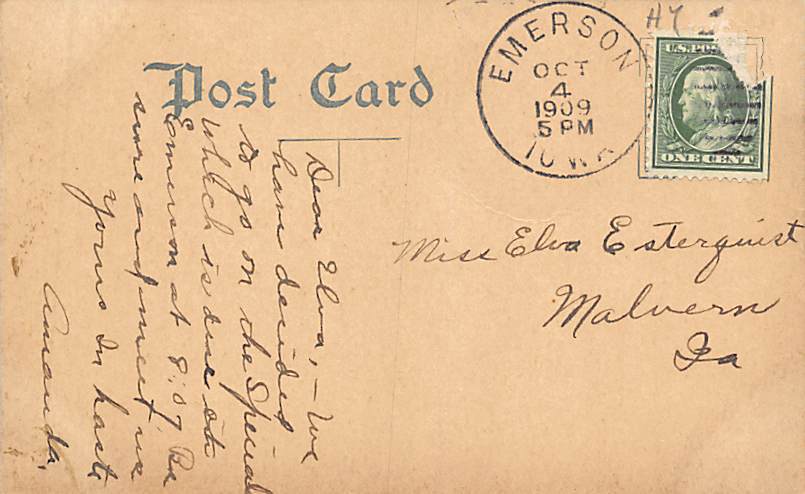 Post Card
EMERSON
OCT
4
1909
5 PM
IOWA
U.S. POS
ONE CENT
Dear Elva, – We
have decided
to go on the Special
which is due at
Emerson at 8:07 Be
sure and meet us
Yours In haste
Amanda.
Miss Elva Esterquist
Malvern
Ia